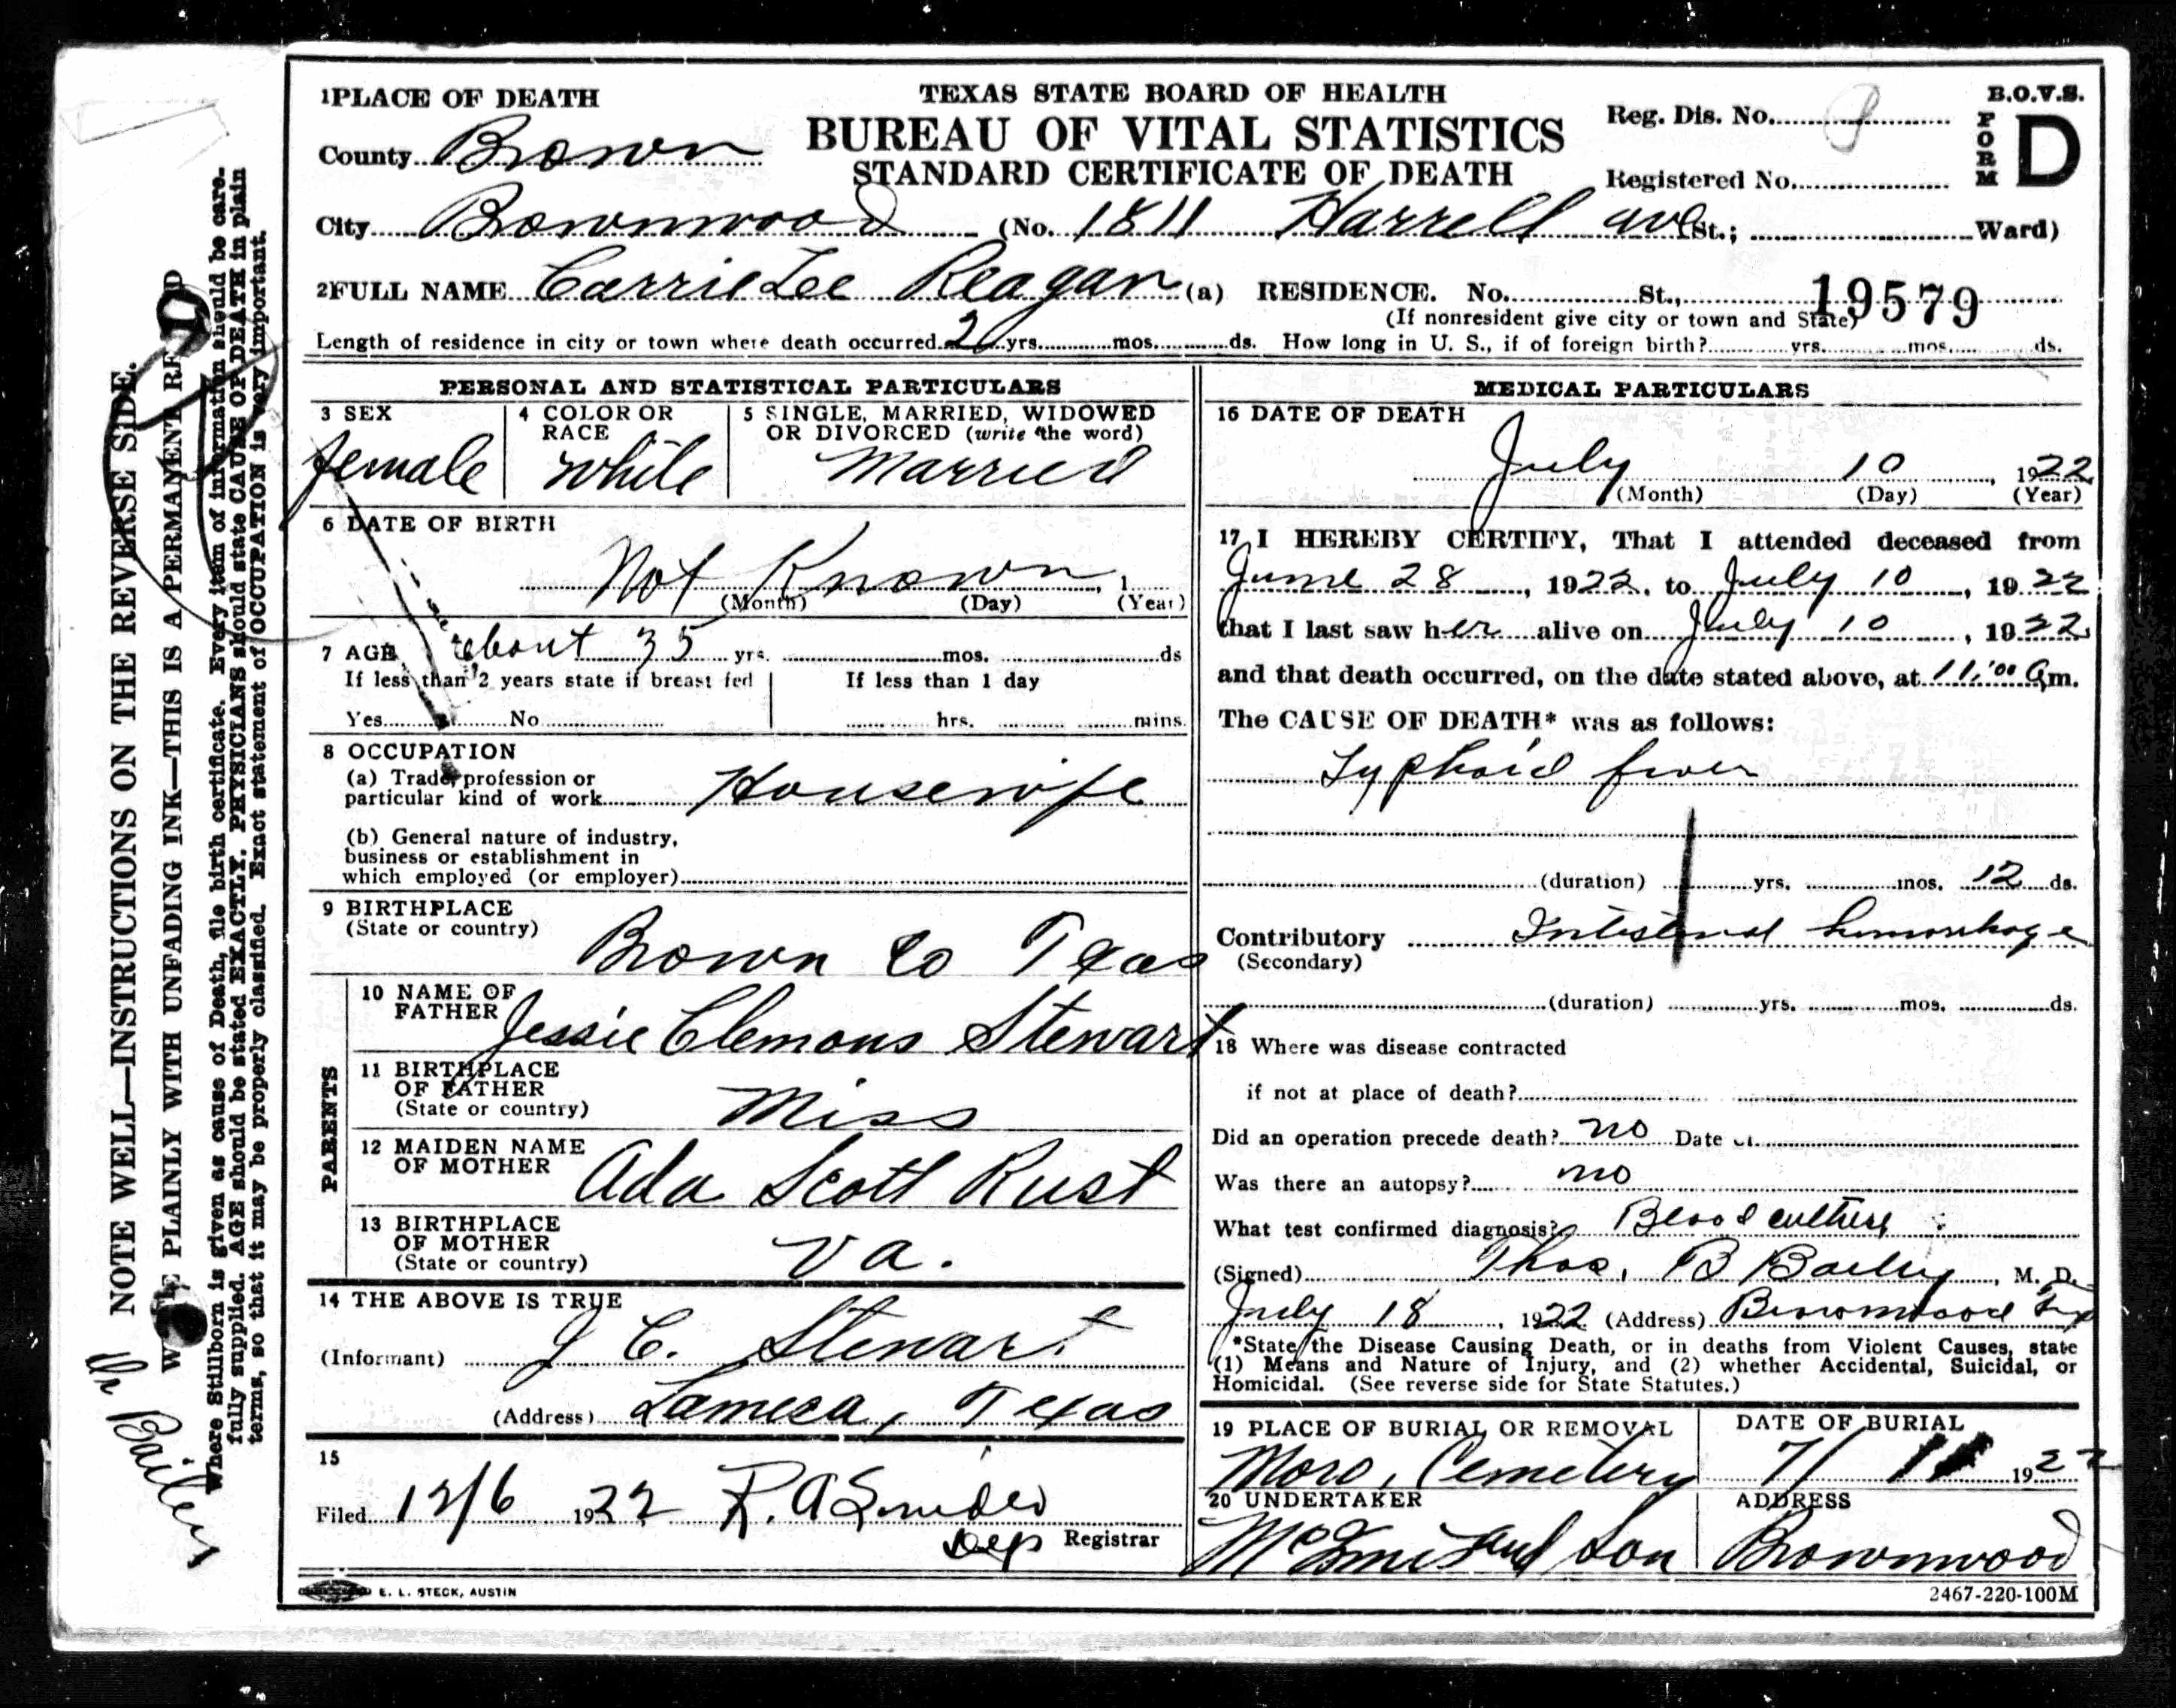 1 PLACE OF DEATH
TEXAS STATE BOARD OF HEALTH
BUREAU OF VITAL STATISTICS
STANDARD CERTIFICATE OF DEATH
Reg. Dis. No.
B.O.V.S.
FORM D
County Brown
Registered No.
City Brownwood (No. 1811 Harrell ave St.; Ward)
2 FULL NAME Carrie Lee Reagan (a) RESIDENCE. No. St., 19579
(If nonresident give city or town and State)
Length of residence in city or town where death occurred yrs. mos. ds. How long in U. S., if of foreign birth? yrs. mos. ds.
PERSONAL AND STATISTICAL PARTICULARS
3 SEX
female
4 COLOR OR RACE
white
5 SINGLE, MARRIED, WIDOWED
OR DIVORCED (write the word)
Married
6 DATE OF BIRTH
Not Known, 1
(Month) (Day) (Year)
7 AGE about 35 yrs. mos. ds
If less than 2 years state if breast fed
If less than 1 day
Yes No
hrs. mins.
8 OCCUPATION
(a) Trade, profession or
particular kind of work Housewife
(b) General nature of industry,
business or establishment in
which employed (or employer)
9 BIRTHPLACE
(State or country)
Brown Co Texas
PARENTS
10 NAME OF
FATHER Jessie Clemons Stewart
11 BIRTHPLACE
OF FATHER
(State or country) Miss
12 MAIDEN NAME
OF MOTHER Ada Scott Rust
13 BIRTHPLACE
OF MOTHER
(State or country) Va.
14 THE ABOVE IS TRUE
(Informant) J C. Stewart
(Address) Lamesa, Texas
15
Filed 12/6 1922 R. A Snider
Dep Registrar
MEDICAL PARTICULARS
16 DATE OF DEATH
July 10, 1922
(Month) (Day) (Year)
17 I HEREBY CERTIFY, That I attended deceased from
June 28, 1922, to July 10, 1922
that I last saw her alive on July 10, 1922
and that death occurred, on the date stated above, at 11:00 a m.
The CAUSE OF DEATH* was as follows:
Typhoid fever
(duration) yrs. mos. 12 ds.
Contributory Intestinal hemorrhage
(Secondary)
(duration) yrs. mos. ds.
18 Where was disease contracted
if not at place of death?
Did an operation precede death? no Date of
Was there an autopsy? no
What test confirmed diagnosis? Blood culture
(Signed) Thos. B Bailey, M. D.
July 18, 1922 (Address) Brownwood Tex
*State the Disease Causing Death, or in deaths from Violent Causes, state
(1) Means and Nature of Injury, and (2) whether Accidental, Suicidal, or
Homicidal. (See reverse side for State Statutes.)
19 PLACE OF BURIAL OR REMOVAL
Moro, Cemetery
DATE OF BURIAL
7/ 11 1922
20 UNDERTAKER
and Son
ADDRESS
Brownwood
E. L. STECK, AUSTIN
2467-220-100M
NOTE WELL—INSTRUCTIONS ON THE REVERSE SIDE.
PLAINLY WITH UNFADING INK—THIS IS A PERMANENT
Where Stillborn is given as cause of Death, file birth certificate. Every item of information should be care-
fully supplied. AGE should be stated EXACTLY. PHYSICIANS should state CAUSE OF DEATH in plain
terms, so that it may be properly classified. Exact statement of OCCUPATION is very important.
Dr Bailey